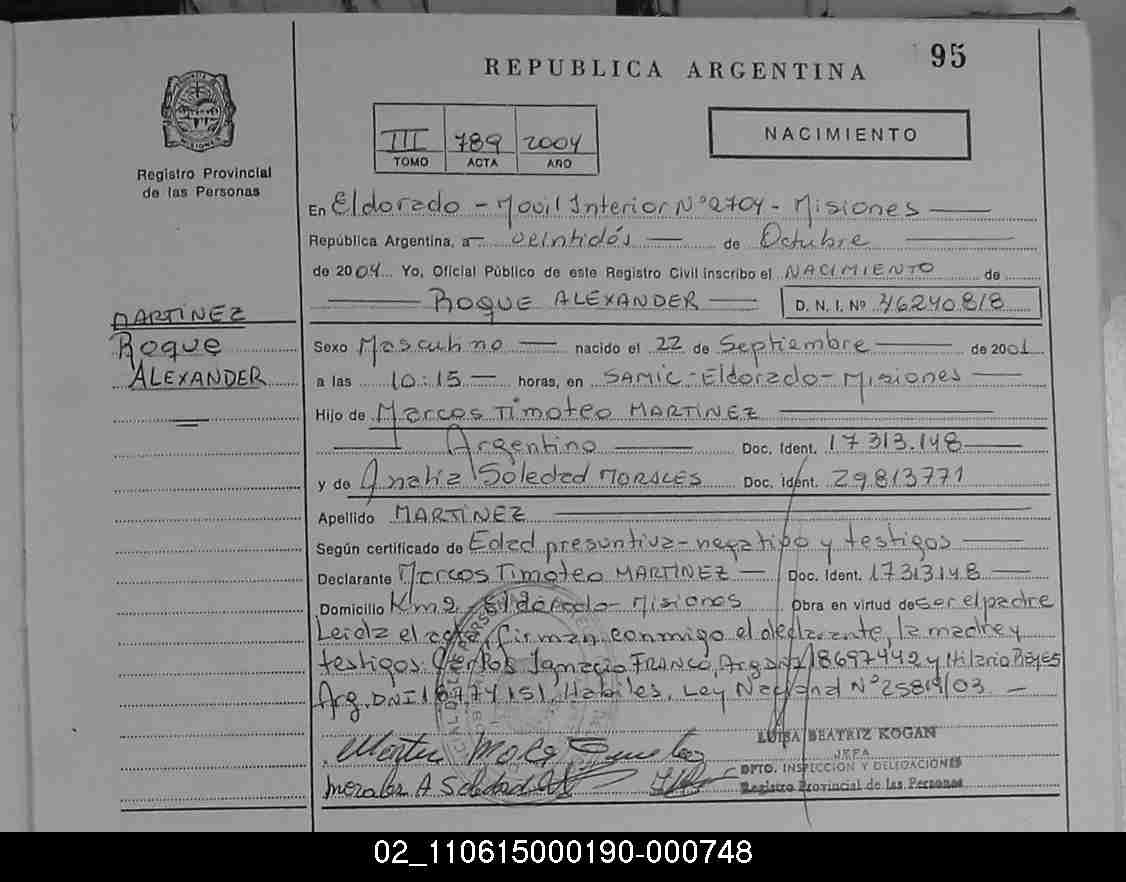 95
REPUBLICA ARGENTINA
NACIMIENTO
III 789 2004
TOMO ACTA AÑO
Registro Provincial
de las Personas
En Eldorado - Movil Interior Nº 2704 - Misiones
República Argentina, a veintidós de Octubre
de 2004 Yo, Oficial Público de este Registro Civil inscribo el NACIMIENTO de
ROQUE ALEXANDER D. N. I. Nº 46240818
MARTINEZ
Roque
ALEXANDER
Sexo Masculino nacido el 22 de Septiembre de 2001
a las 10:15 horas, en SAMIC - Eldorado - Misiones
Hijo de Marcos Timoteo MARTINEZ
Argentino Doc. Ident. 17313.148
y de Analia Soledad MORALES Doc. Ident. 29813771
Apellido MARTINEZ
Según certificado de Edad presuntiva - negativo y testigos
Declarante Marcos Timoteo MARTINEZ Doc. Ident. 17313148
Domicilio Km 9 Eldorado - Misiones Obra en virtud de ser el padre
Leida el acta, firman conmigo el declarante, la madre y
testigos: Carlos Ignacio FRANCO, Arg. DNI 18697442 y Hilario Reyes
Arg. DNI 18774151, Habiles, Ley Nacional Nº 25819/03. -
LUISA BEATRIZ KOGAN
JEFA
DPTO. INSPECCION Y DELEGACIONES
Registro Provincial de las Personas
Morales A Soledad
02_110615000190-000748